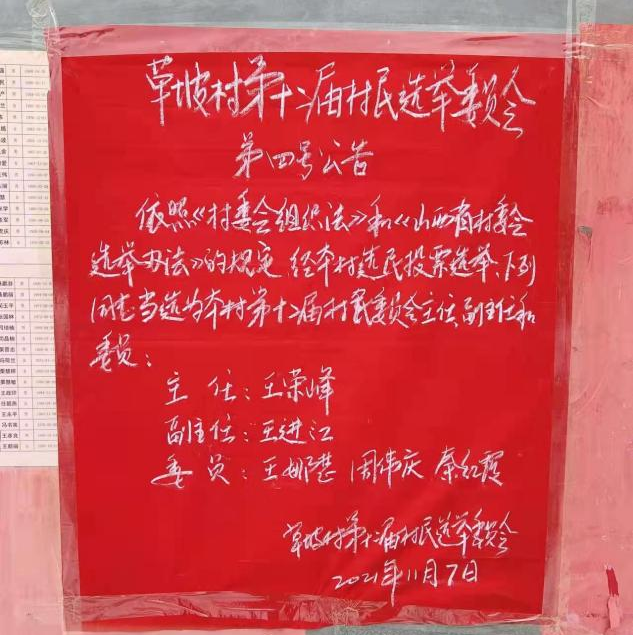 草坡村第十二届村民选举委员会
第四号公告
依照《村委会组织法》和《山西省村委会
选举办法》的规定,经本村选民投票选举、下列
同志当选为本村第十二届村民委员会主任、副主任和
委员:
主 任:王荣峰
副主任:王进江
委 员:王娜 周伟庆 秦红霞
草坡村第十二届村民选举委员会
2021年11月7日